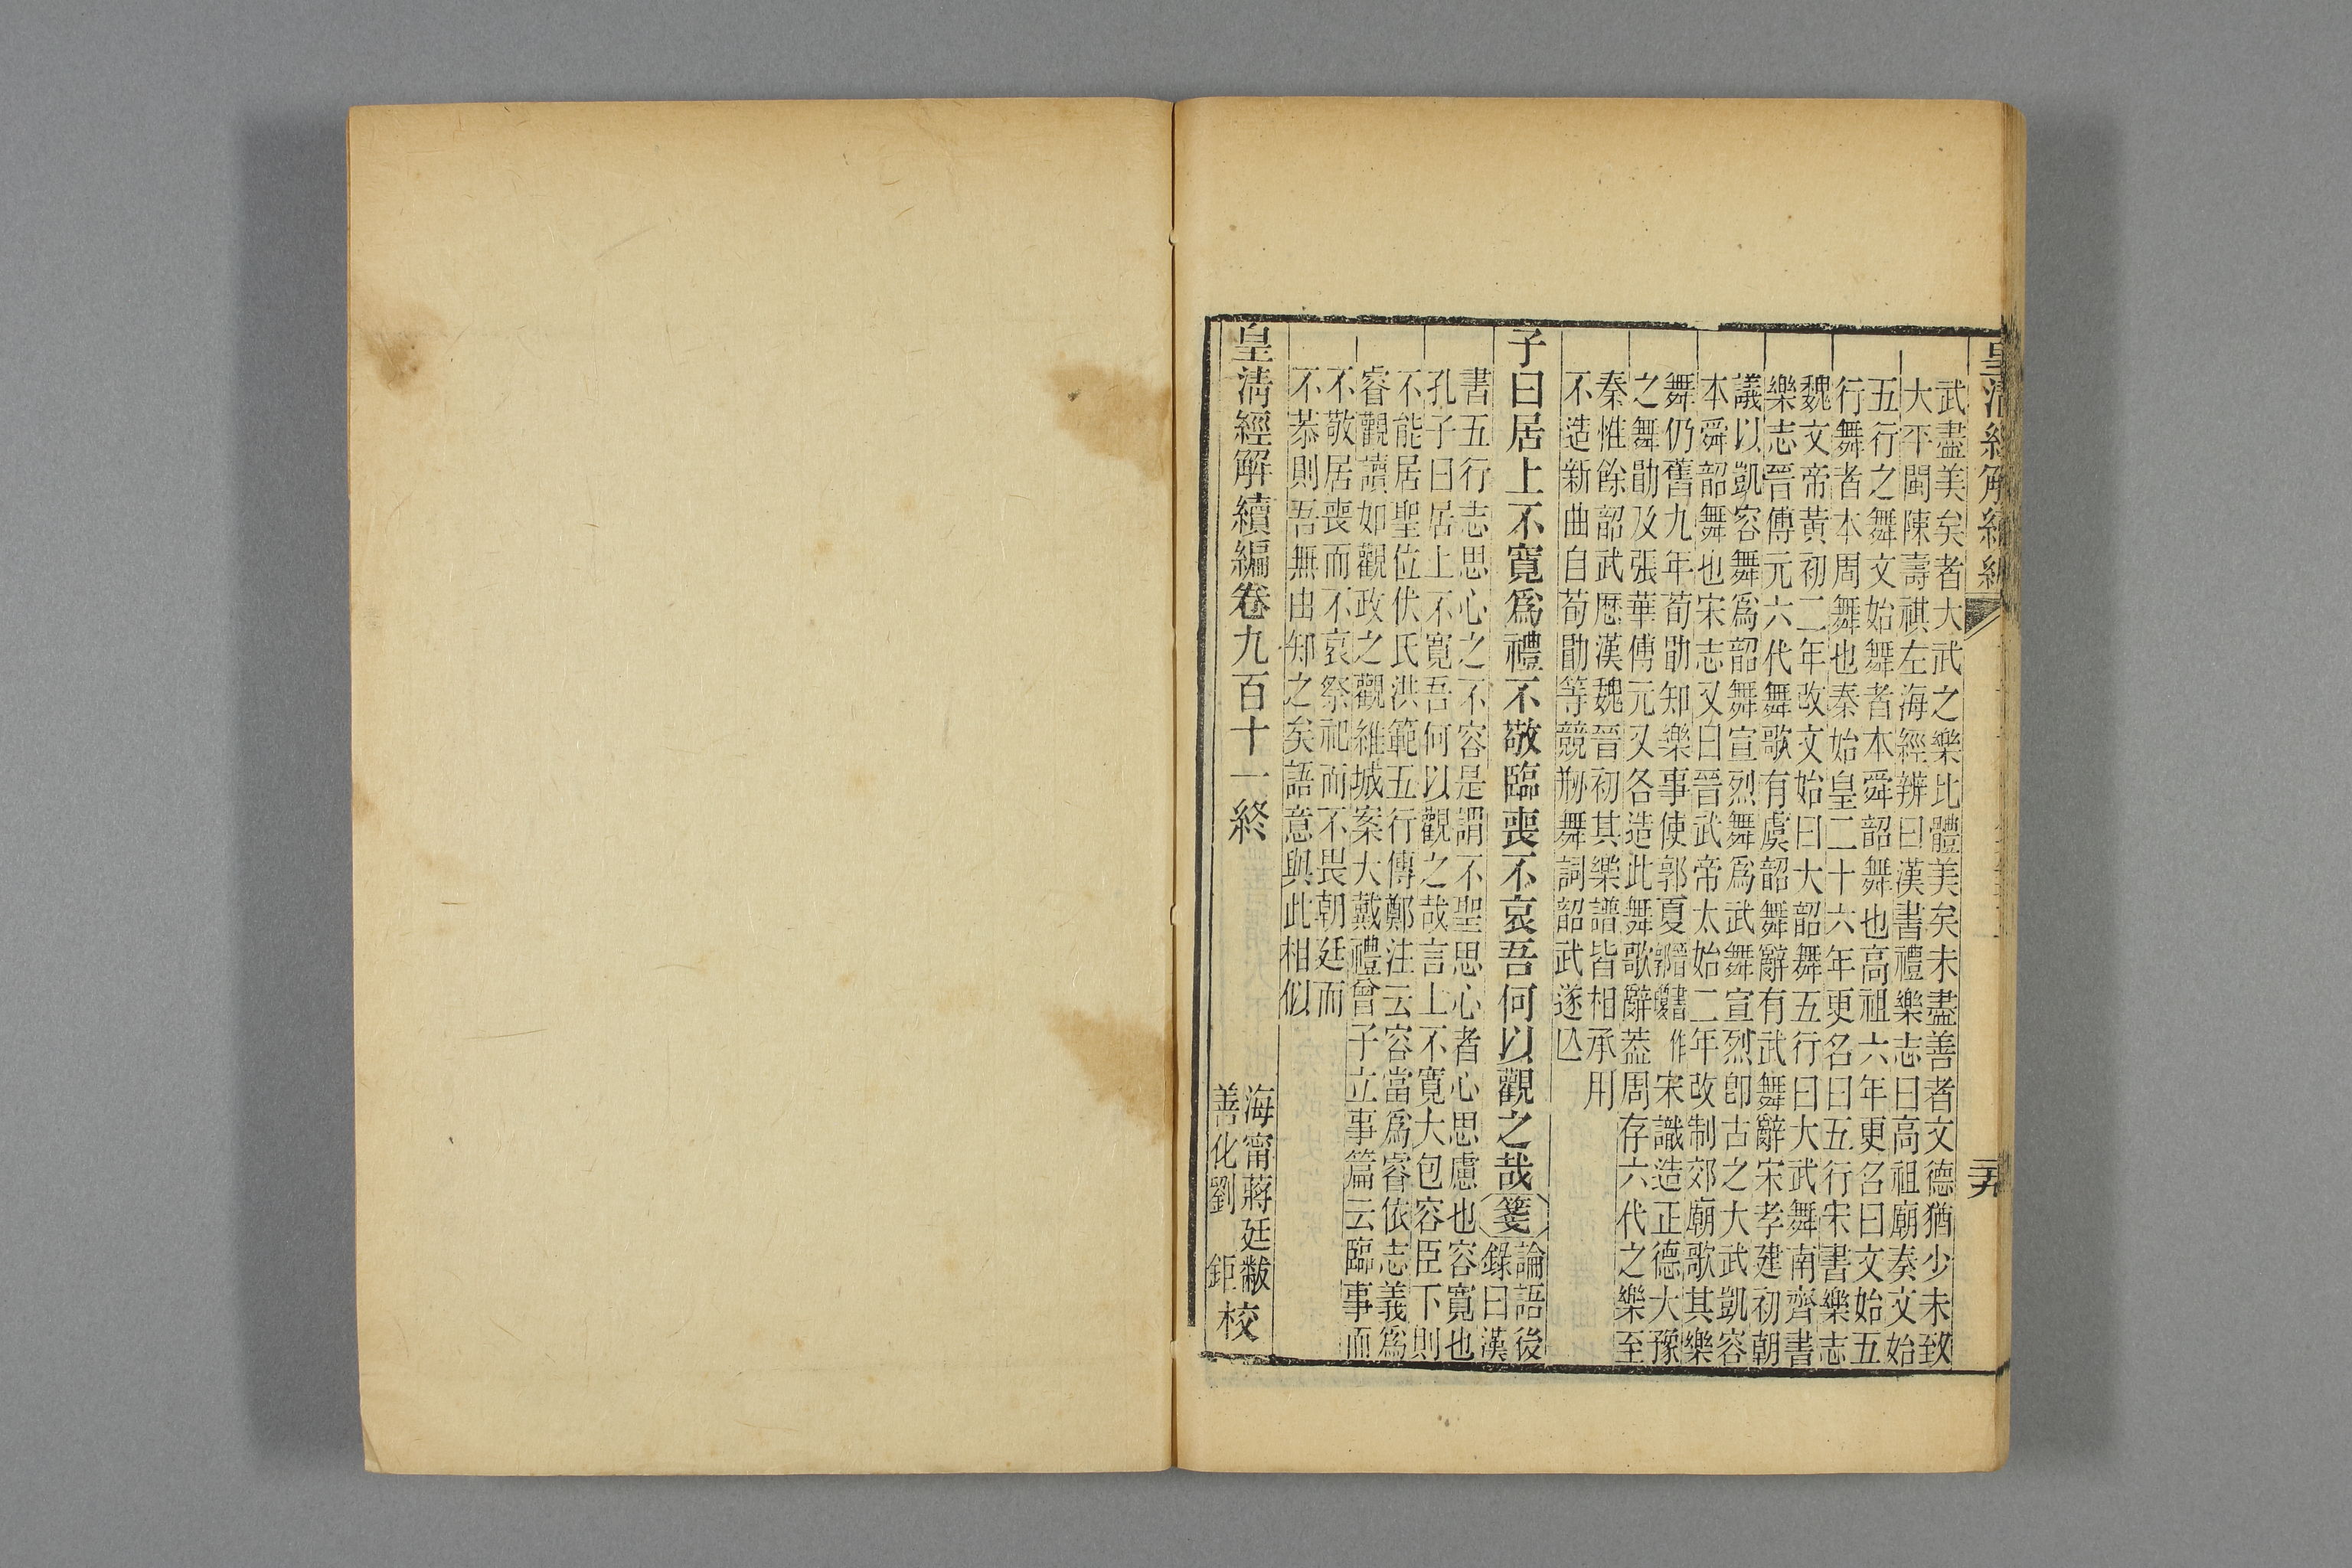 皇清經解續編
五
武盡美矣者大武之樂比體美矣未盡善者文德猶少未致
大平閩陳壽祺左海經辨曰漢書禮樂志曰高祖廟奏文始
五行之舞文始舞者本舜韶舞也高祖六年更名曰文始五
行舞者本周舞也秦始皇二十六年更名曰五行宋書樂志
魏文帝黃初二年改文始曰大韶舞五行曰大武舞南齊書
樂志晉傅元六代舞歌有虞韶舞辭有武舞辭宋孝建初朝
議以凱容舞爲韶舞宣烈舞爲武舞宣烈卽古之大武凱容
本舜韶舞也宋志又曰晉武帝太始二年改制郊廟歌其樂
舞仍舊九年荀勖知樂事使郭夏作宋識造正德大豫
之舞勖及張華傅元又各造此舞歌辭葢周存六代之樂至
秦惟餘韶武歷漢魏晉初其樂譜皆相承用
不造新曲自荀勖等競剏舞詞韶武遂亾
子曰居上不寬爲禮不敬臨喪不哀吾何以觀之哉箋論語後
錄曰漢
書五行志思心之不容是謂不聖思心者心思慮也容寬也
孔子曰居上不寬吾何以觀之哉言上不寬大包容臣下則
不能居聖位伏氏洪範五行傳鄭注云容當爲睿依志義爲
睿觀讀如觀政之觀維城案大戴禮曾子立事篇云臨事而
不敬居喪而不哀祭祀而不畏朝廷而
不恭則吾無由知之矣語意與此相似
皇清經解續編卷九百十一終
海甯蔣廷黻
善化劉鉅校